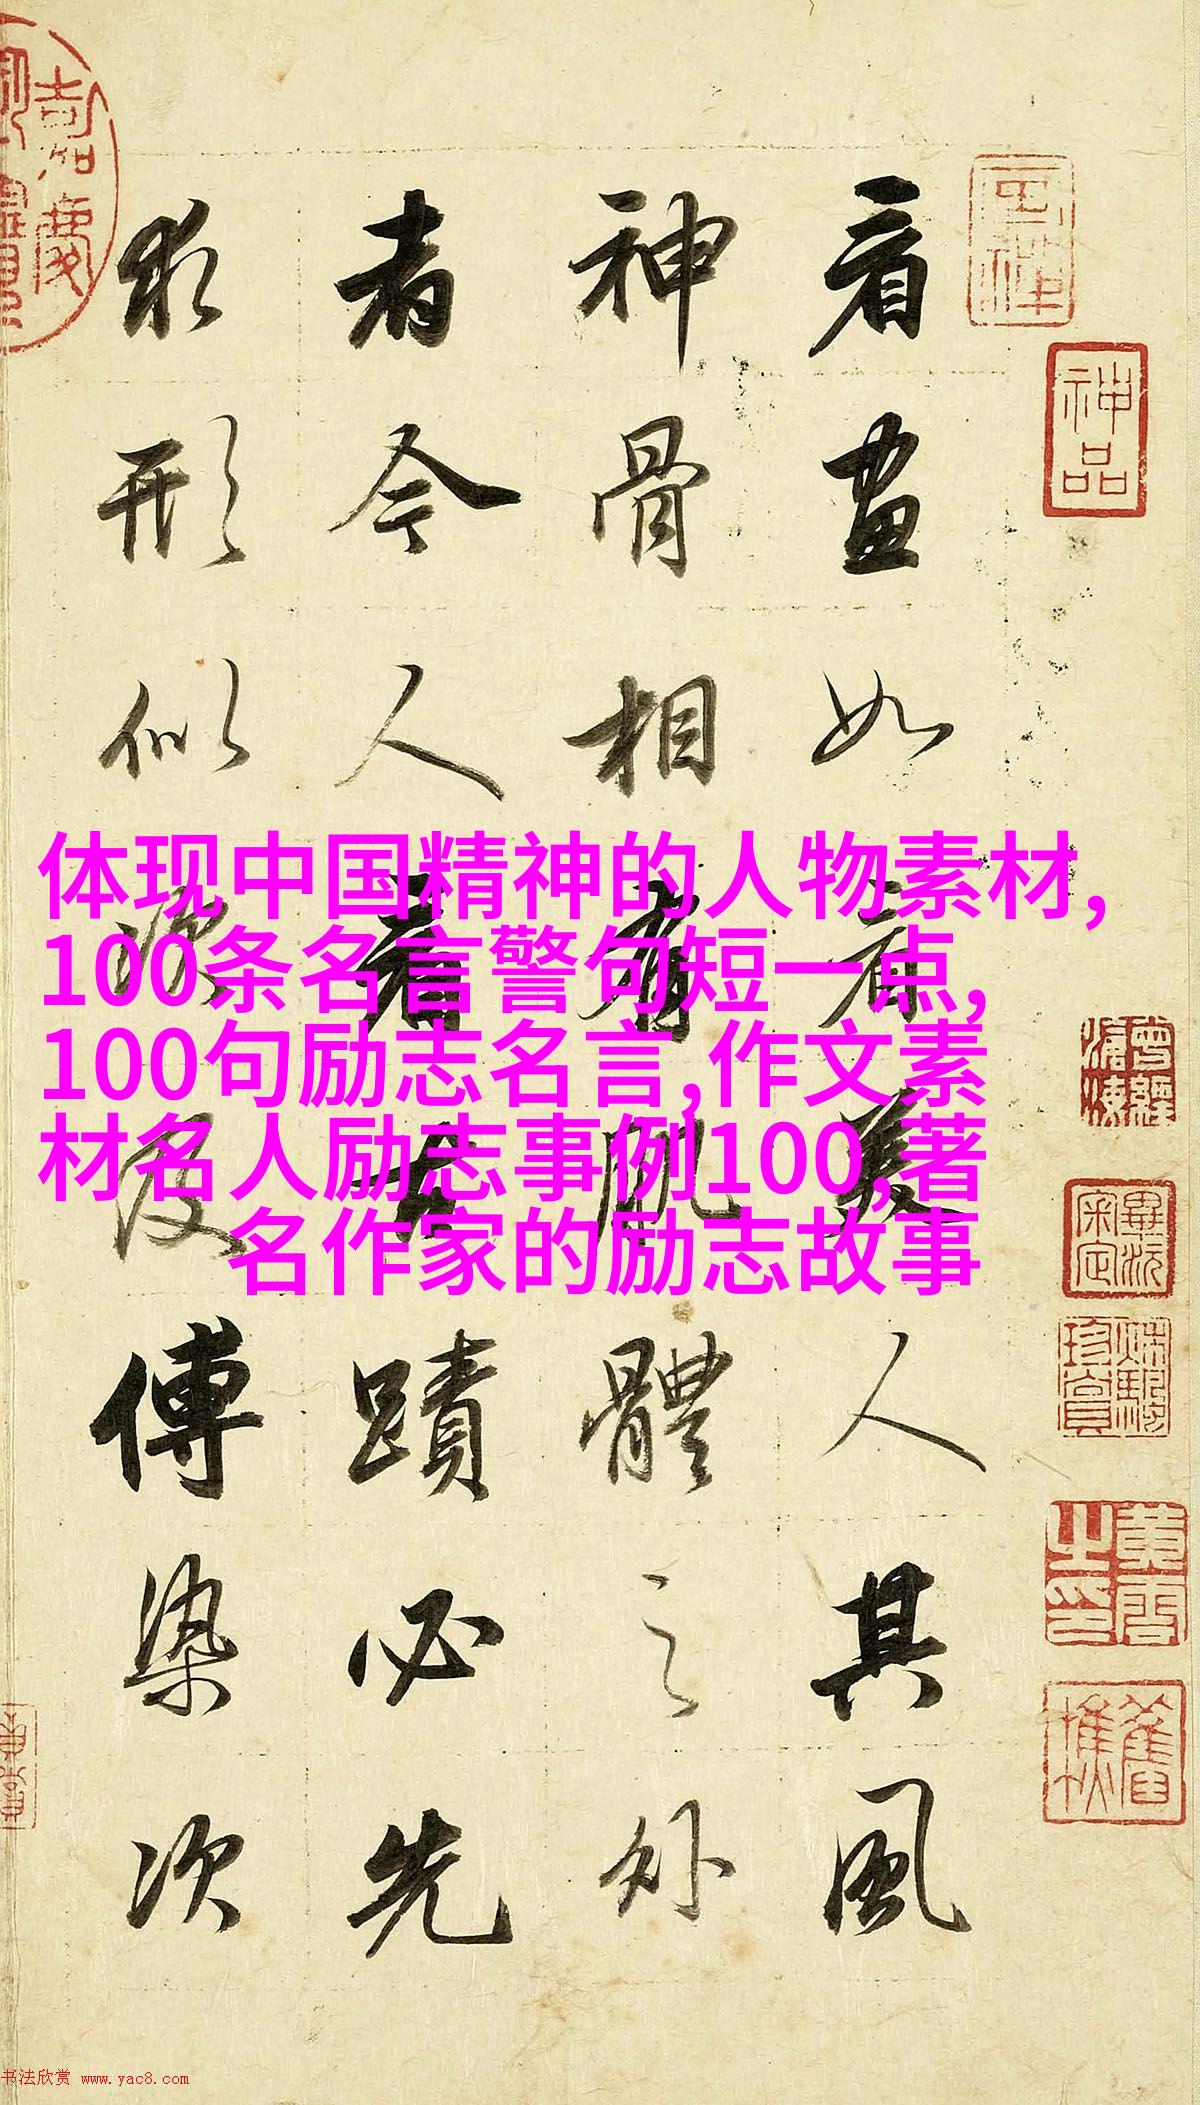 体现中国精神的人物素材,
100条名言警句短一点,
100句励志名言,作文素
材名人励志事例100,著
名作家的励志故事
看畫如看美人其風
神骨相有肌體之外
者今人看古蹟必先
求形似次及傅染次
神品
嘉慶
书法欣赏 www.yac8.com